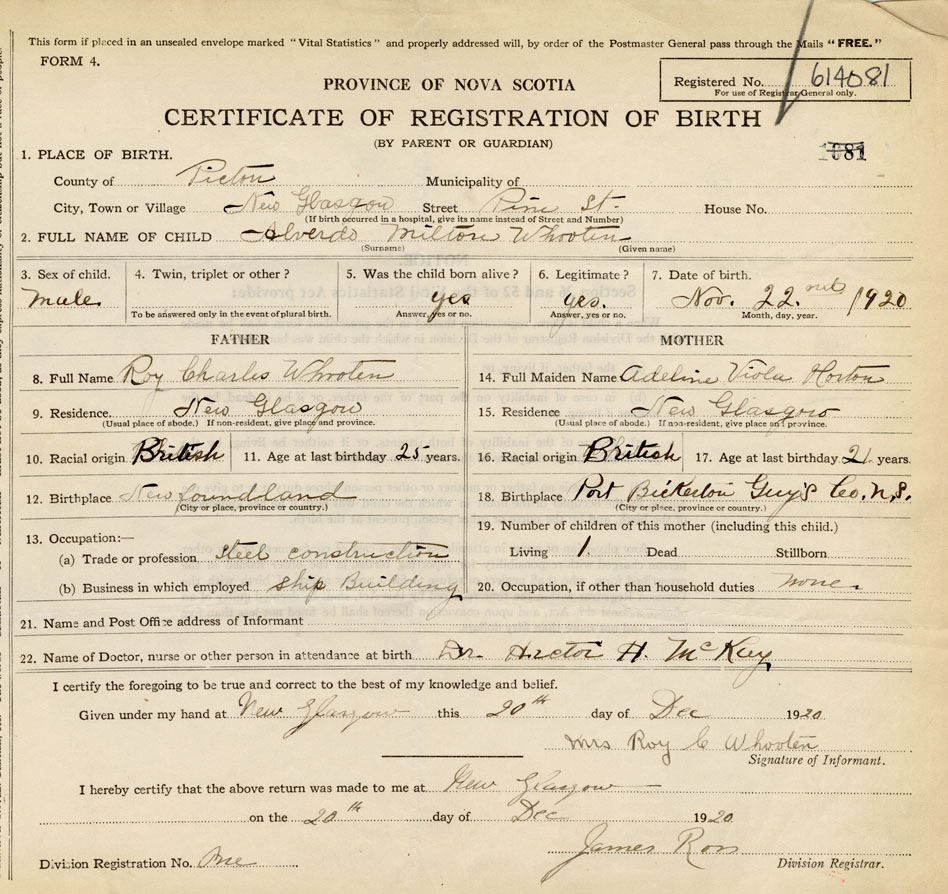 This form if placed in an unsealed envelope marked "Vital Statistics" and properly addressed will, by order of the Postmaster General pass through the Mails "FREE."
FORM 4.
Registered No. 614081
For use of Registrar General only.
PROVINCE OF NOVA SCOTIA
CERTIFICATE OF REGISTRATION OF BIRTH
(BY PARENT OR GUARDIAN)
1081
1. PLACE OF BIRTH.
County of Pictou Municipality of
City, Town or Village New Glasgow Street Pine St. House No.
(If birth occurred in a hospital, give its name instead of Street and Number)
2. FULL NAME OF CHILD Alverdo Milton Whooten
(Surname) (Given name)
3. Sex of child. 4. Twin, triplet or other? 5. Was the child born alive? 6. Legitimate? 7. Date of birth.
Male yes yes. Nov. 22. nd 1920
To be answered only in the event of plural birth. Answer, yes or no. Answer, yes or no. Month, day, year.
FATHER MOTHER
8. Full Name Roy Charles Whooten 14. Full Maiden Name Adeline Viola Horton
9. Residence. New Glasgow 15. Residence New Glasgow
(Usual place of abode.) If non-resident, give place and province. (Usual place of abode.) If non-resident, give place and province.
10. Racial origin British 11. Age at last birthday 25 years. 16. Racial origin British 17. Age at last birthday 21 years.
12. Birthplace Newfoundland 18. Birthplace Port Bickerton Guy's Co. N.S.
(City or place, province or country.) (City or place, province or country.)
13. Occupation:— 19. Number of children of this mother (including this child.)
(a) Trade or profession Steel construction Living 1. Dead Stillborn
(b) Business in which employed Ship Building 20. Occupation, if other than household duties none.
21. Name and Post Office address of Informant
22. Name of Doctor, nurse or other person in attendance at birth Dr. Hector H. McKay
I certify the foregoing to be true and correct to the best of my knowledge and belief.
Given under my hand at New Glasgow this 20th day of Dec 1920
Mrs Roy C Whooten
Signature of Informant.
I hereby certify that the above return was made to me at New Glasgow
on the 20th day of Dec 1920.
James Ross
Division Registration No. One Division Registrar.